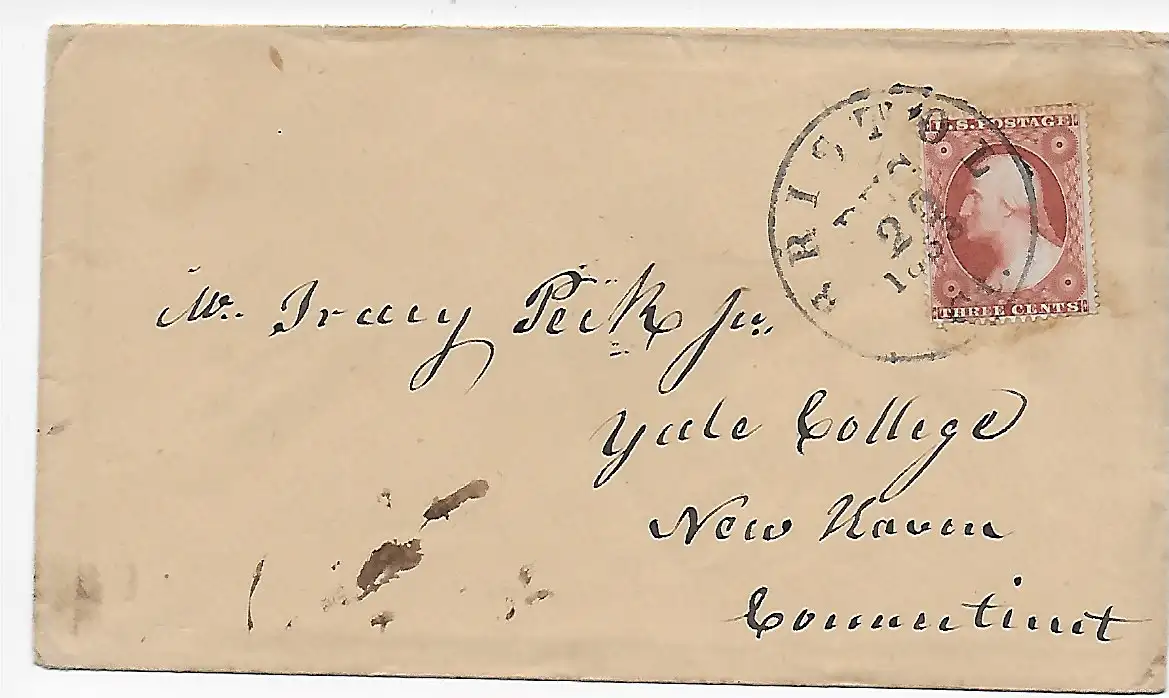 BRISTOL
22
U.S. POSTAGE
THREE CENTS
Mr. Tracy Peck Jr.
Yale College
New Haven
Connecticut